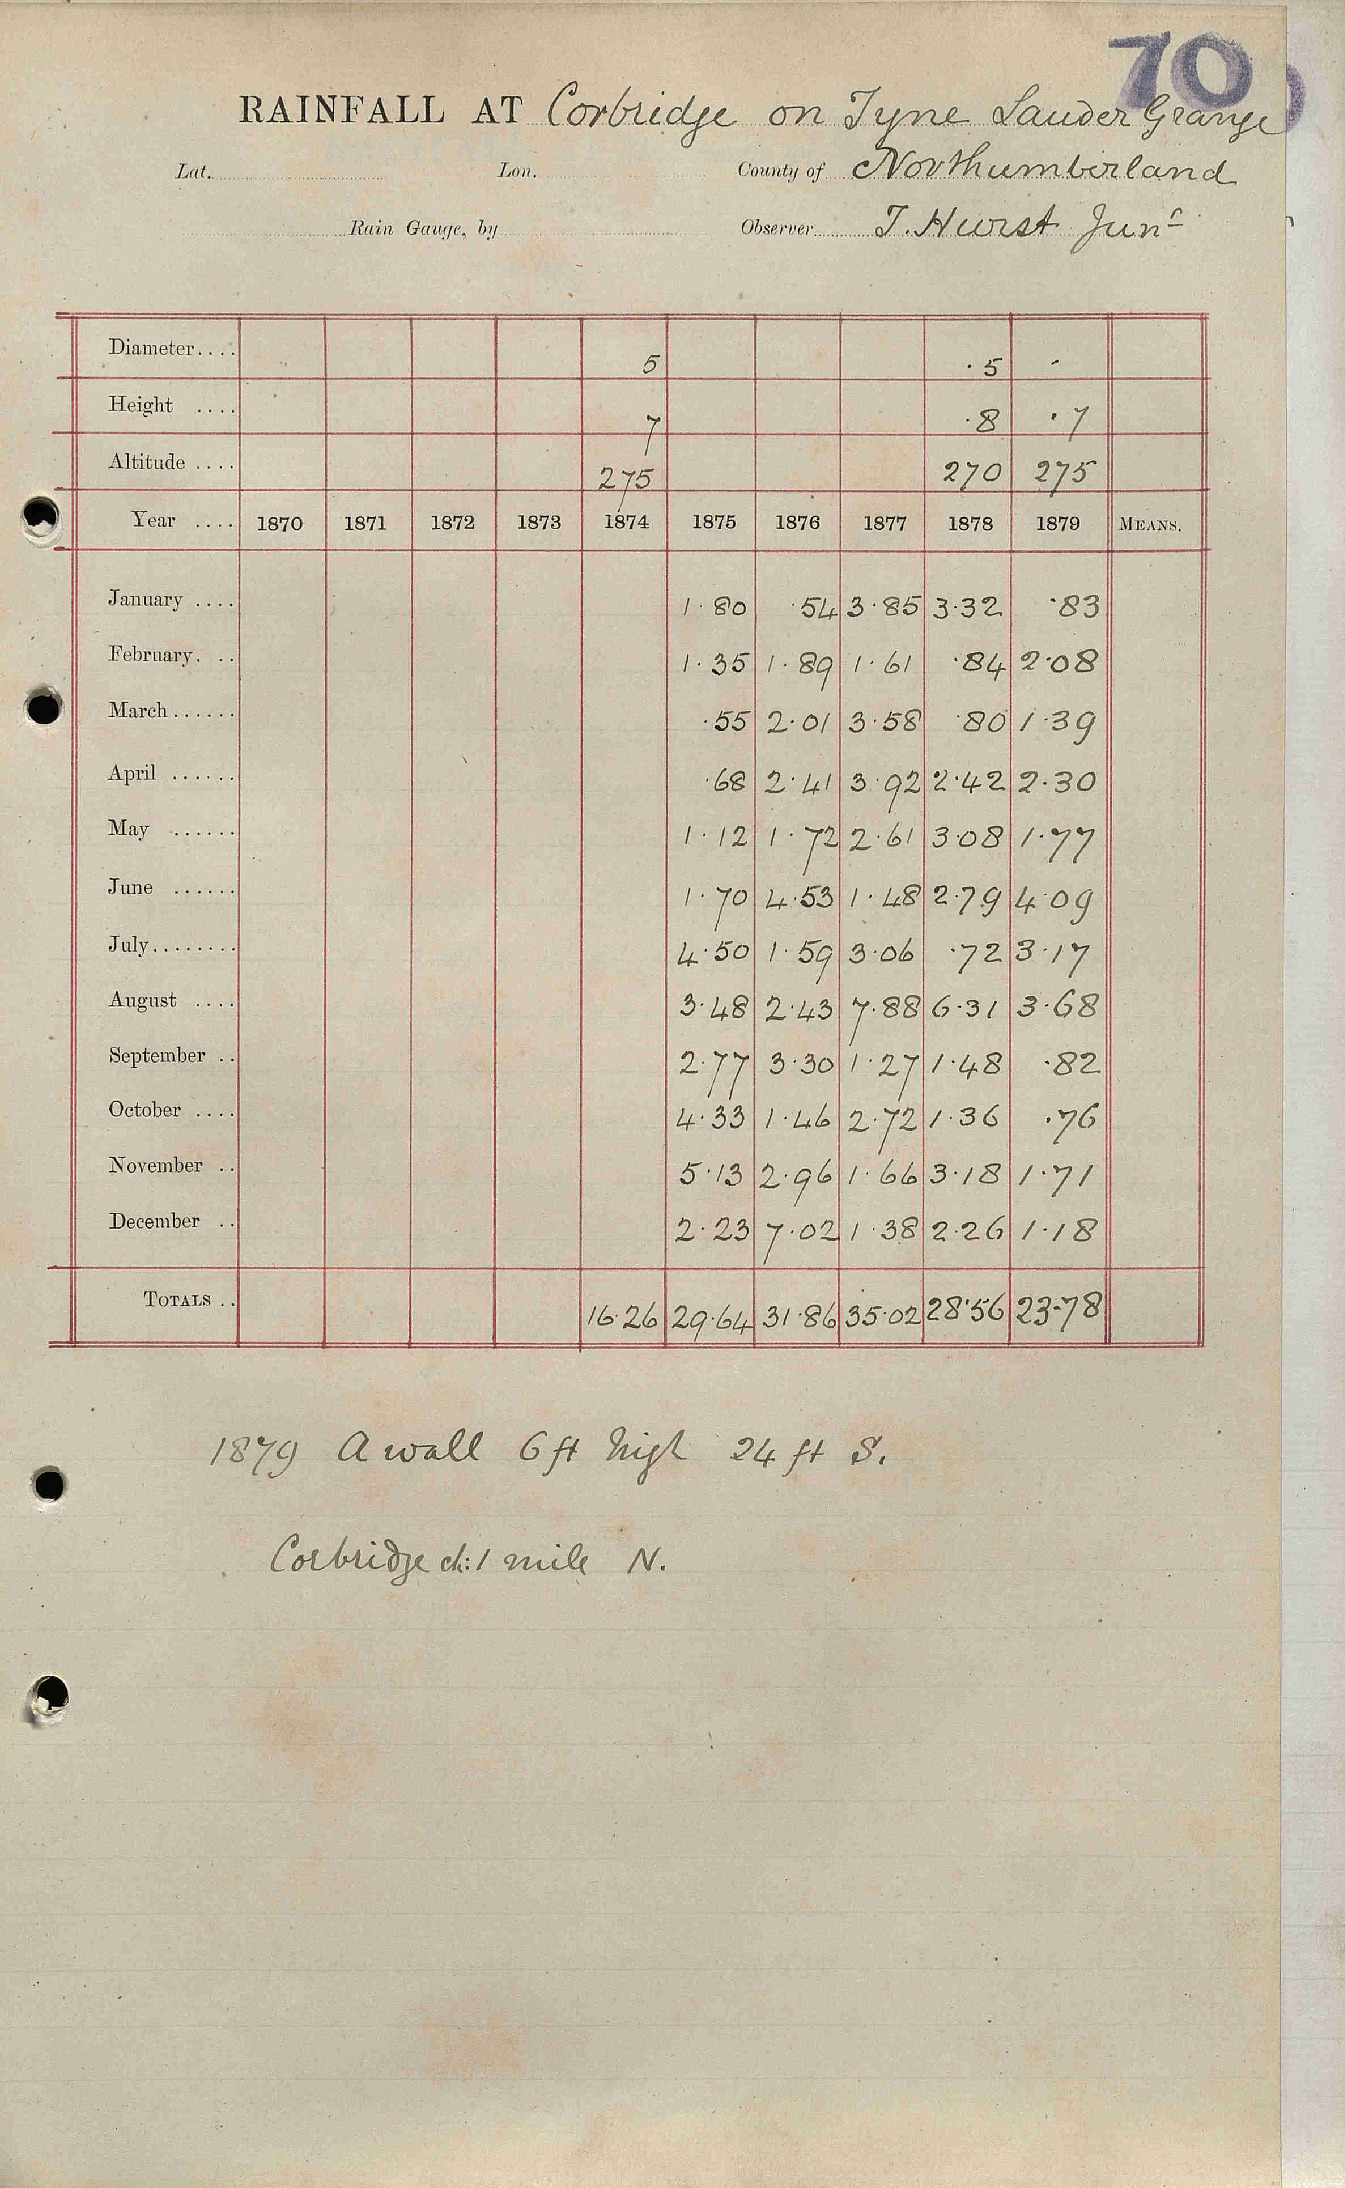 70
RAINFALL AT Corbridge on Tyne Lauder Grange
Lat. Lon. County of Northumberland
Rain Gauge, by Observer T. Hurst Junr
Diameter.... 5 .5 -
Height .... 7 .8 .7
Altitude .... 275 270 275
Year .... 1870 1871 1872 1873 1874 1875 1876 1877 1878 1879 MEANS.
January .... 1.80 .54 3.85 3.32 .83
February. .. 1.35 1.89 1.61 .84 2.08
March...... .55 2.01 3.58 .80 1.39
April ...... .68 2.41 3.92 2.42 2.30
May ...... 1.12 1.72 2.61 3.08 1.77
June ...... 1.70 4.53 1.48 2.79 4.09
July........ 4.50 1.59 3.06 .72 3.17
August .... 3.48 2.43 7.88 6.31 3.68
September .. 2.77 3.30 1.27 1.48 .82
October .... 4.33 1.46 2.72 1.36 .76
November .. 5.13 2.96 1.66 3.18 1.71
December .. 2.23 7.02 1.38 2.26 1.18
TOTALS .. 16.26 29.64 31.86 35.02 28.56 23.78
1879 A wall 6 ft high 24 ft S.
Corbridge ch: 1 mile N.